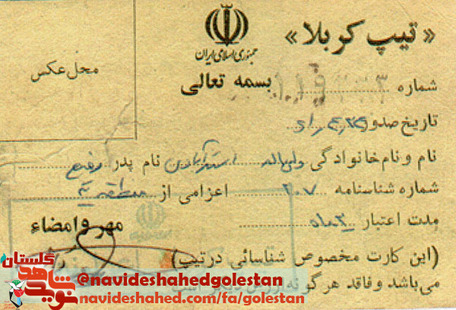 «تیپ کربلا»
جمهوری اسلامی ایران
محل عکس
بسمه تعالی
شماره
تاریخ صدور
نام و نام خانوادگی ولی‌اله استرآبادی نام پدر رفیع
شماره شناسنامه ۲۰۷ اعزامی از منطقه ۳
مدت اعتبار ۳ ماه مهر و امضاء
(این کارت مخصوص شناسائی در تیپ)
می باشد و فاقد هر گونه
گلستان
شاهد
نوید
@navideshahedgolestan
navideshahed.com/fa/golestan